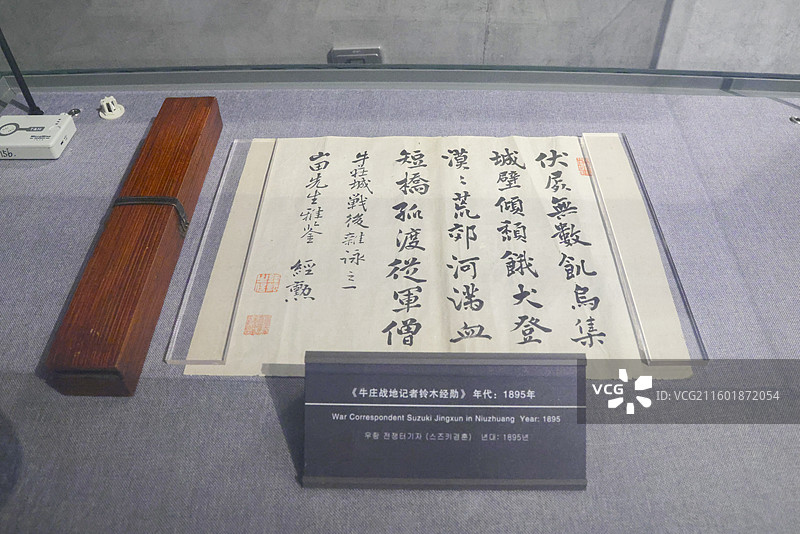 伏屍無數飢烏集
城壁傾頹餓犬登
漠〻荒郊河満血
短橋孤渡從軍僧
牛荘城戰後雜詠之一
山田先生雅鑒
經勲
《牛庄战地记者铃木经勋》 年代：1895年
War Correspondent Suzuki Jingxun in Niuzhuang Year: 1895
우황 전쟁터기자 (스즈키경훈) 년대: 1895년
VCG
VCG211601872054